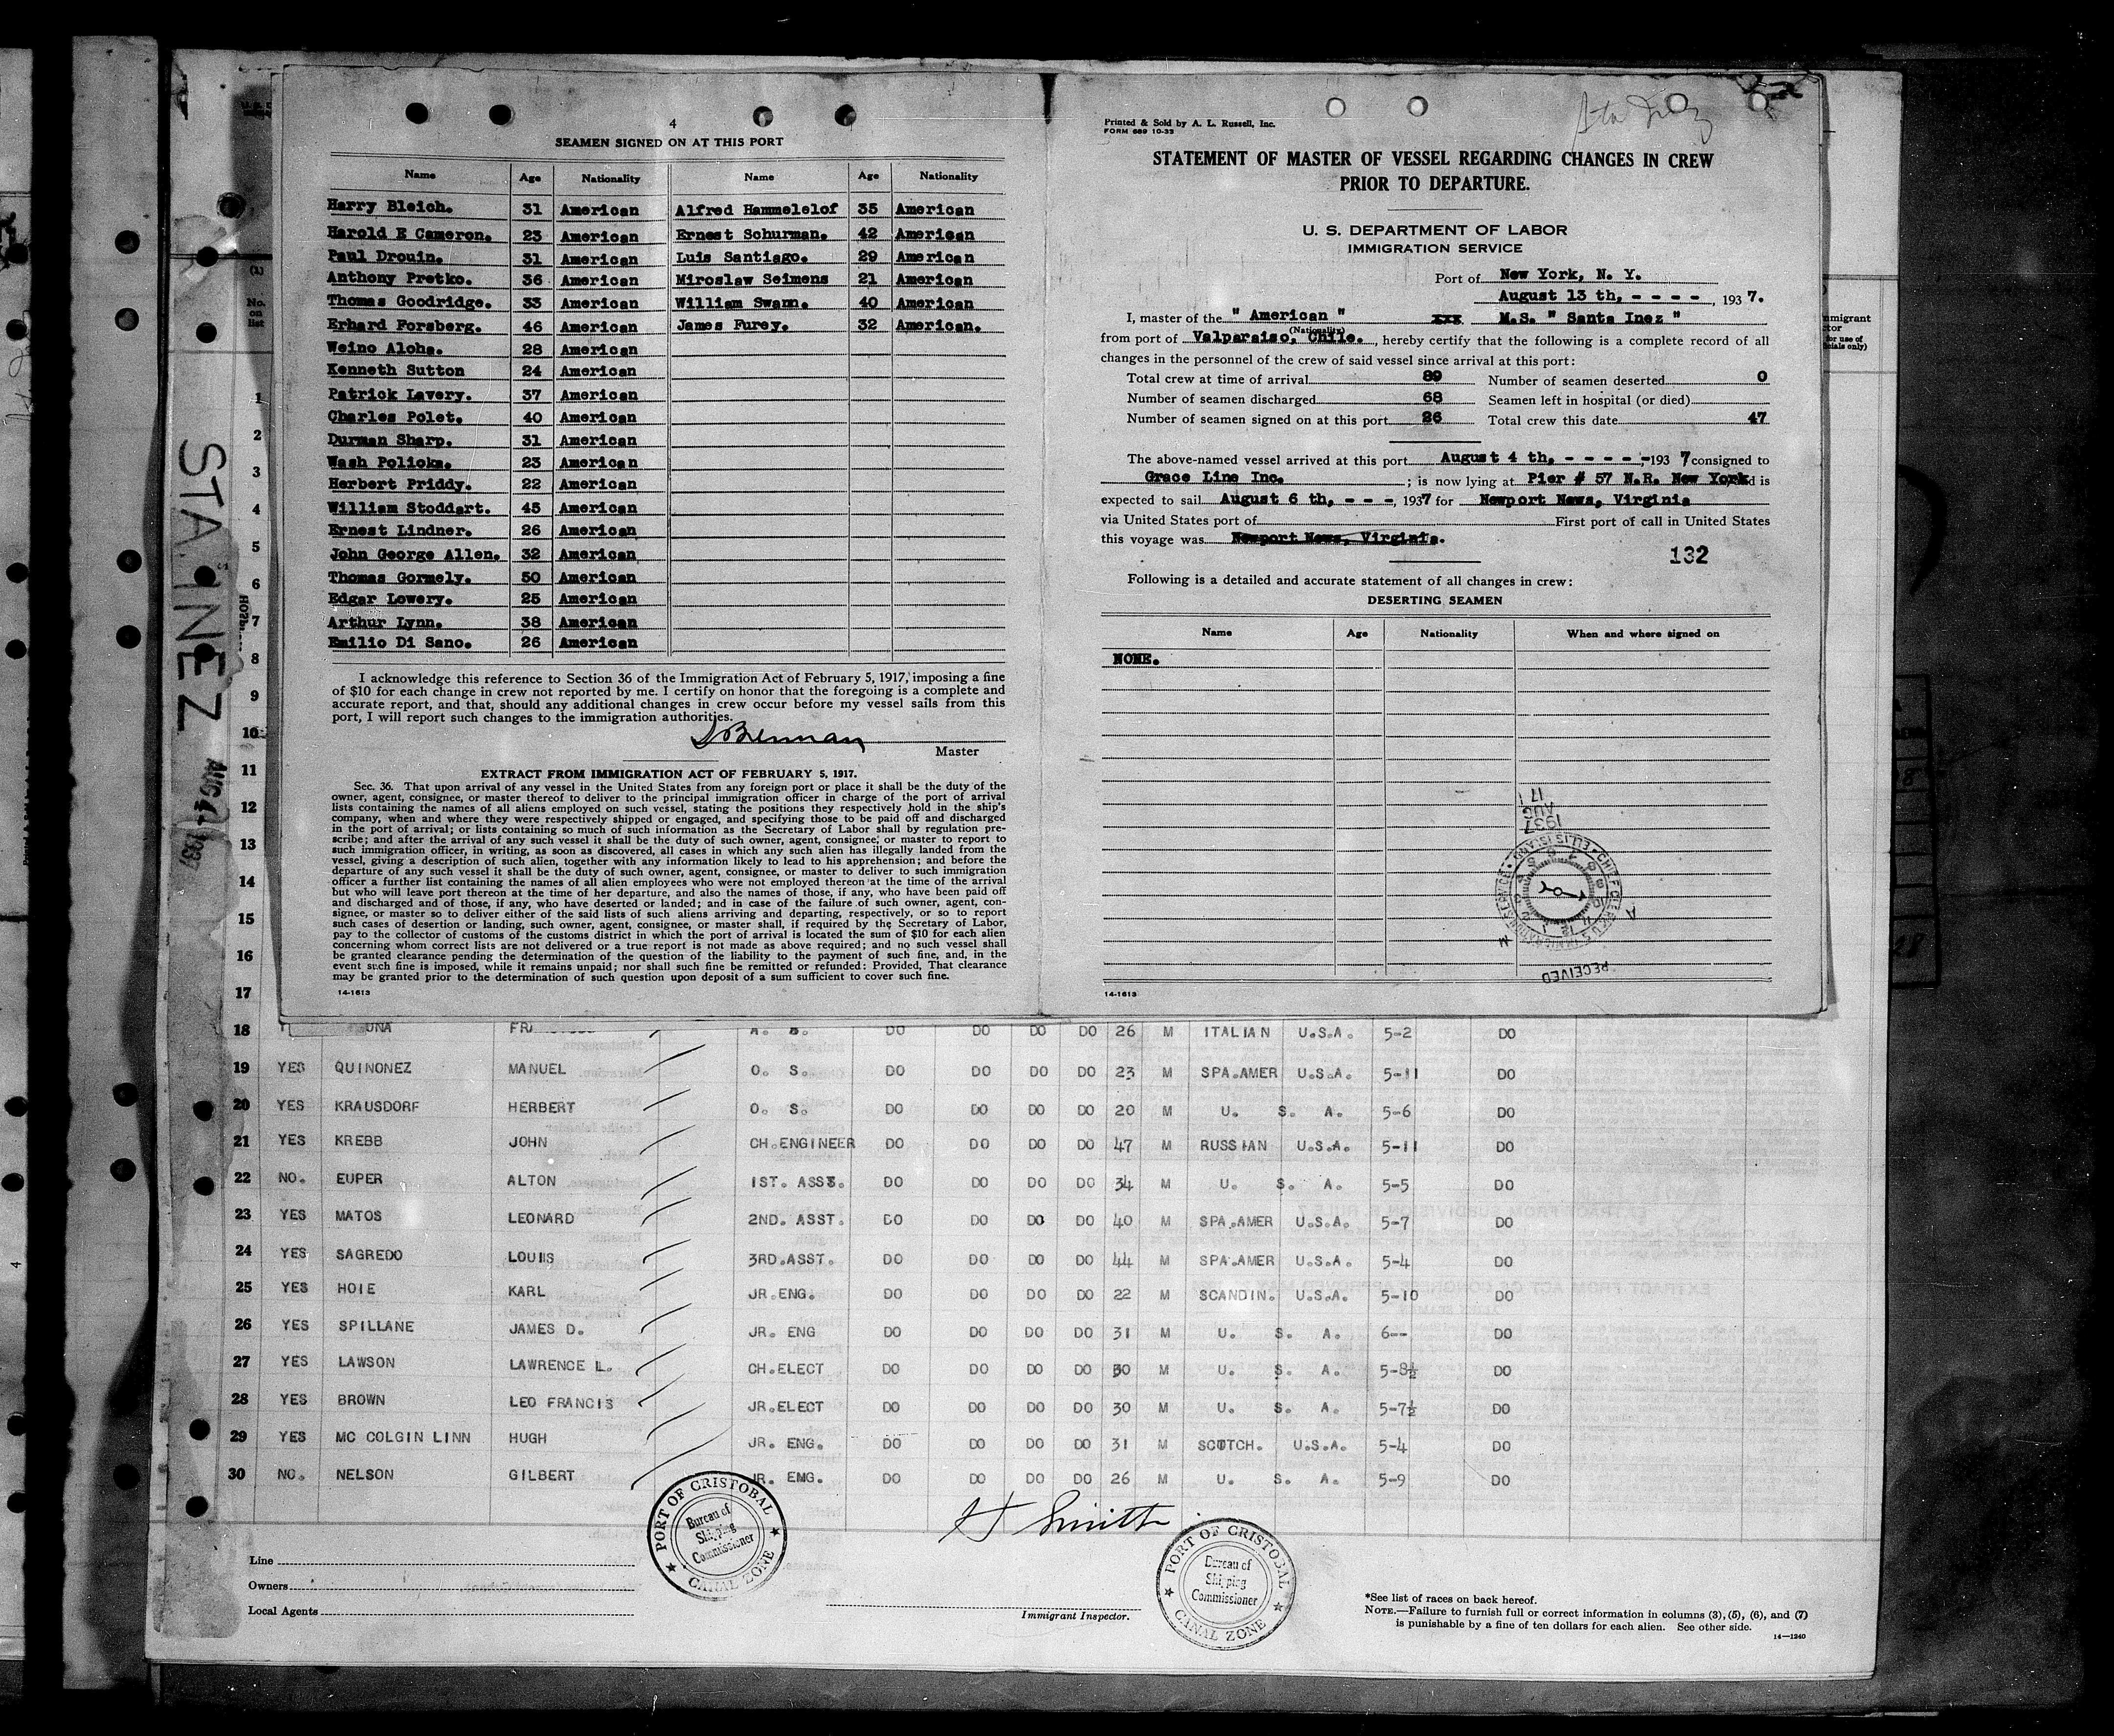 4
SEAMEN SIGNED ON AT THIS PORT
Name Age Nationality Name Age Nationality
Harry Bleich. 31 American Alfred Hammelelof 35 American
Harold E Cameron. 23 American Ernest Schurman. 42 American
Paul Drouin. 31 American Luis Santiago. 29 American
Anthony Pretko. 36 American Miroslaw Seimens 21 American
Thomas Goodridge. 33 American William Swann. 40 American
Erhard Forsberg. 46 American James Furey. 32 American.
Weino Aloha. 28 American
Kenneth Sutton 24 American
Patrick Lavery. 37 American
Charles Polet. 40 American
Durman Sharp. 31 American
Wash Polioka. 23 American
Herbert Priddy. 22 American
William Stoddart. 45 American
Ernest Lindner. 26 American
John George Allen. 32 American
Thomas Gormely. 50 American
Edgar Lowery. 25 American
Arthur Lynn. 38 American
Emilio Di Sano. 26 American
I acknowledge this reference to Section 36 of the Immigration Act of February 5, 1917, imposing a fine
of $10 for each change in crew not reported by me. I certify on honor that the foregoing is a complete and
accurate report, and that, should any additional changes in crew occur before my vessel sails from this
port, I will report such changes to the immigration authorities.
Brennan
Master
EXTRACT FROM IMMIGRATION ACT OF FEBRUARY 5, 1917.
Sec. 36. That upon arrival of any vessel in the United States from any foreign port or place it shall be the duty of the
owner, agent, consignee, or master thereof to deliver to the principal immigration officer in charge of the port of arrival
lists containing the names of all aliens employed on such vessel, stating the positions they respectively hold in the ship's
company, when and where they were respectively shipped or engaged, and specifying those to be paid off and discharged
in the port of arrival; or lists containing so much of such information as the Secretary of Labor shall by regulation pre-
scribe; and after the arrival of any such vessel it shall be the duty of such owner, agent, consignee, or master to report to
such immigration officer, in writing, as soon as discovered, all cases in which any such alien has illegally landed from the
vessel, giving a description of such alien, together with any information likely to lead to his apprehension; and before the
departure of any such vessel it shall be the duty of such owner, agent, consignee, or master to deliver to such immigration
officer a further list containing the names of all alien employees who were not employed thereon at the time of the arrival
but who will leave port thereon at the time of her departure, and also the names of those, if any, who have been paid off
and discharged and of those, if any, who have deserted or landed; and in case of the failure of such owner, agent, con-
signee, or master so to deliver either of the said lists of such aliens arriving and departing, respectively, or so to report
such cases of desertion or landing, such owner, agent, consignee, or master shall, if required by the Secretary of Labor,
pay to the collector of customs of the customs district in which the port of arrival is located the sum of $10 for each alien
concerning whom correct lists are not delivered or a true report is not made as above required; and no such vessel shall
be granted clearance pending the determination of the question of the liability to the payment of such fine, and, in the
event such fine is imposed, while it remains unpaid; nor shall such fine be remitted or refunded: Provided, That clearance
may be granted prior to the determination of such question upon deposit of a sum sufficient to cover such fine.
14-1613
Printed & Sold by A. L. Russell, Inc.
FORM 689 10-33
Sta Inez
STATEMENT OF MASTER OF VESSEL REGARDING CHANGES IN CREW
PRIOR TO DEPARTURE.
U. S. DEPARTMENT OF LABOR
IMMIGRATION SERVICE
Port of New York, N. Y.
August 13 th, - - - - , 1937.
I, master of the " American " xxx M.S. " Santa Inez "
(Nationality)
from port of Valparaiso, Chile. , hereby certify that the following is a complete record of all
changes in the personnel of the crew of said vessel since arrival at this port:
Total crew at time of arrival 89 Number of seamen deserted 0
Number of seamen discharged 68 Seamen left in hospital (or died)
Number of seamen signed on at this port 26 Total crew this date 47
The above-named vessel arrived at this port August 4 th, - - - - - , 1937 consigned to
Grace Line Inc. ; is now lying at Pier # 57 N.R. New York d is
expected to sail August 6 th, - - - , 1937 for Newport News, Virginia
via United States port of First port of call in United States
this voyage was Newport News, Virginia.
132
Following is a detailed and accurate statement of all changes in crew:
DESERTING SEAMEN
Name Age Nationality When and where signed on
NONE.
RECEIVED
CHIEF CLERK U.S. IMMIGRATION SERVICE ELLIS ISLAND
1937
AUG
17
14-1613
STA. INEZ
AUG 4 1937
(1)
No.
on
list
1
2
3
4
5
6
7
8
9
10
11
12
13
14
15
16
17
18 UNA FR A. B. DO DO DO DO 26 M ITALIAN U.S.A. 5-2 DO
19 YES QUINONEZ MANUEL O. S. DO DO DO DO 23 M SPA.AMER U.S.A. 5-11 DO
20 YES KRAUSDORF HERBERT O. S. DO DO DO DO 20 M U. S. A. 5-6 DO
21 YES KREBB JOHN CH.ENGINEER DO DO DO DO 47 M RUSSIAN U.S.A. 5-11 DO
22 NO. EUPER ALTON 1ST. ASST. DO DO DO DO 34 M U. S. A. 5-5 DO
23 YES MATOS LEONARD 2ND. ASST. DO DO DO DO 40 M SPA.AMER U.S.A. 5-7 DO
24 YES SAGREDO LOUIS 3RD.ASST. DO DO DO DO 44 M SPA.AMER U.S.A. 5-4 DO
25 YES HOIE KARL JR.ENG. DO DO DO DO 22 M SCANDIN. U.S.A. 5-10 DO
26 YES SPILLANE JAMES D. JR. ENG DO DO DO DO 31 M U. S. A. 6-- DO
27 YES LAWSON LAWRENCE L. CH.ELECT DO DO DO DO 30 M U. S. A. 5-8½ DO
28 YES BROWN LEO FRANCIS JR.ELECT DO DO DO DO 30 M U. S. A. 5-7½ DO
29 YES MC COLGIN LINN HUGH JR. ENG. DO DO DO DO 31 M SCOTCH. U.S.A. 5-4 DO
30 NO. NELSON GILBERT JR. EMG. DO DO DO DO 26 M U. S. A. 5-9 DO
PORT OF CRISTOBAL
Bureau of
Shipping
Commissioner
CANAL ZONE
Smith
PORT OF CRISTOBAL
Bureau of
Shipping
Commissioner
CANAL ZONE
Line
Owners
Local Agents
Immigrant Inspector.
*See list of races on back hereof.
NOTE.—Failure to furnish full or correct information in columns (3), (5), (6), and (7)
is punishable by a fine of ten dollars for each alien. See other side.
14—1240